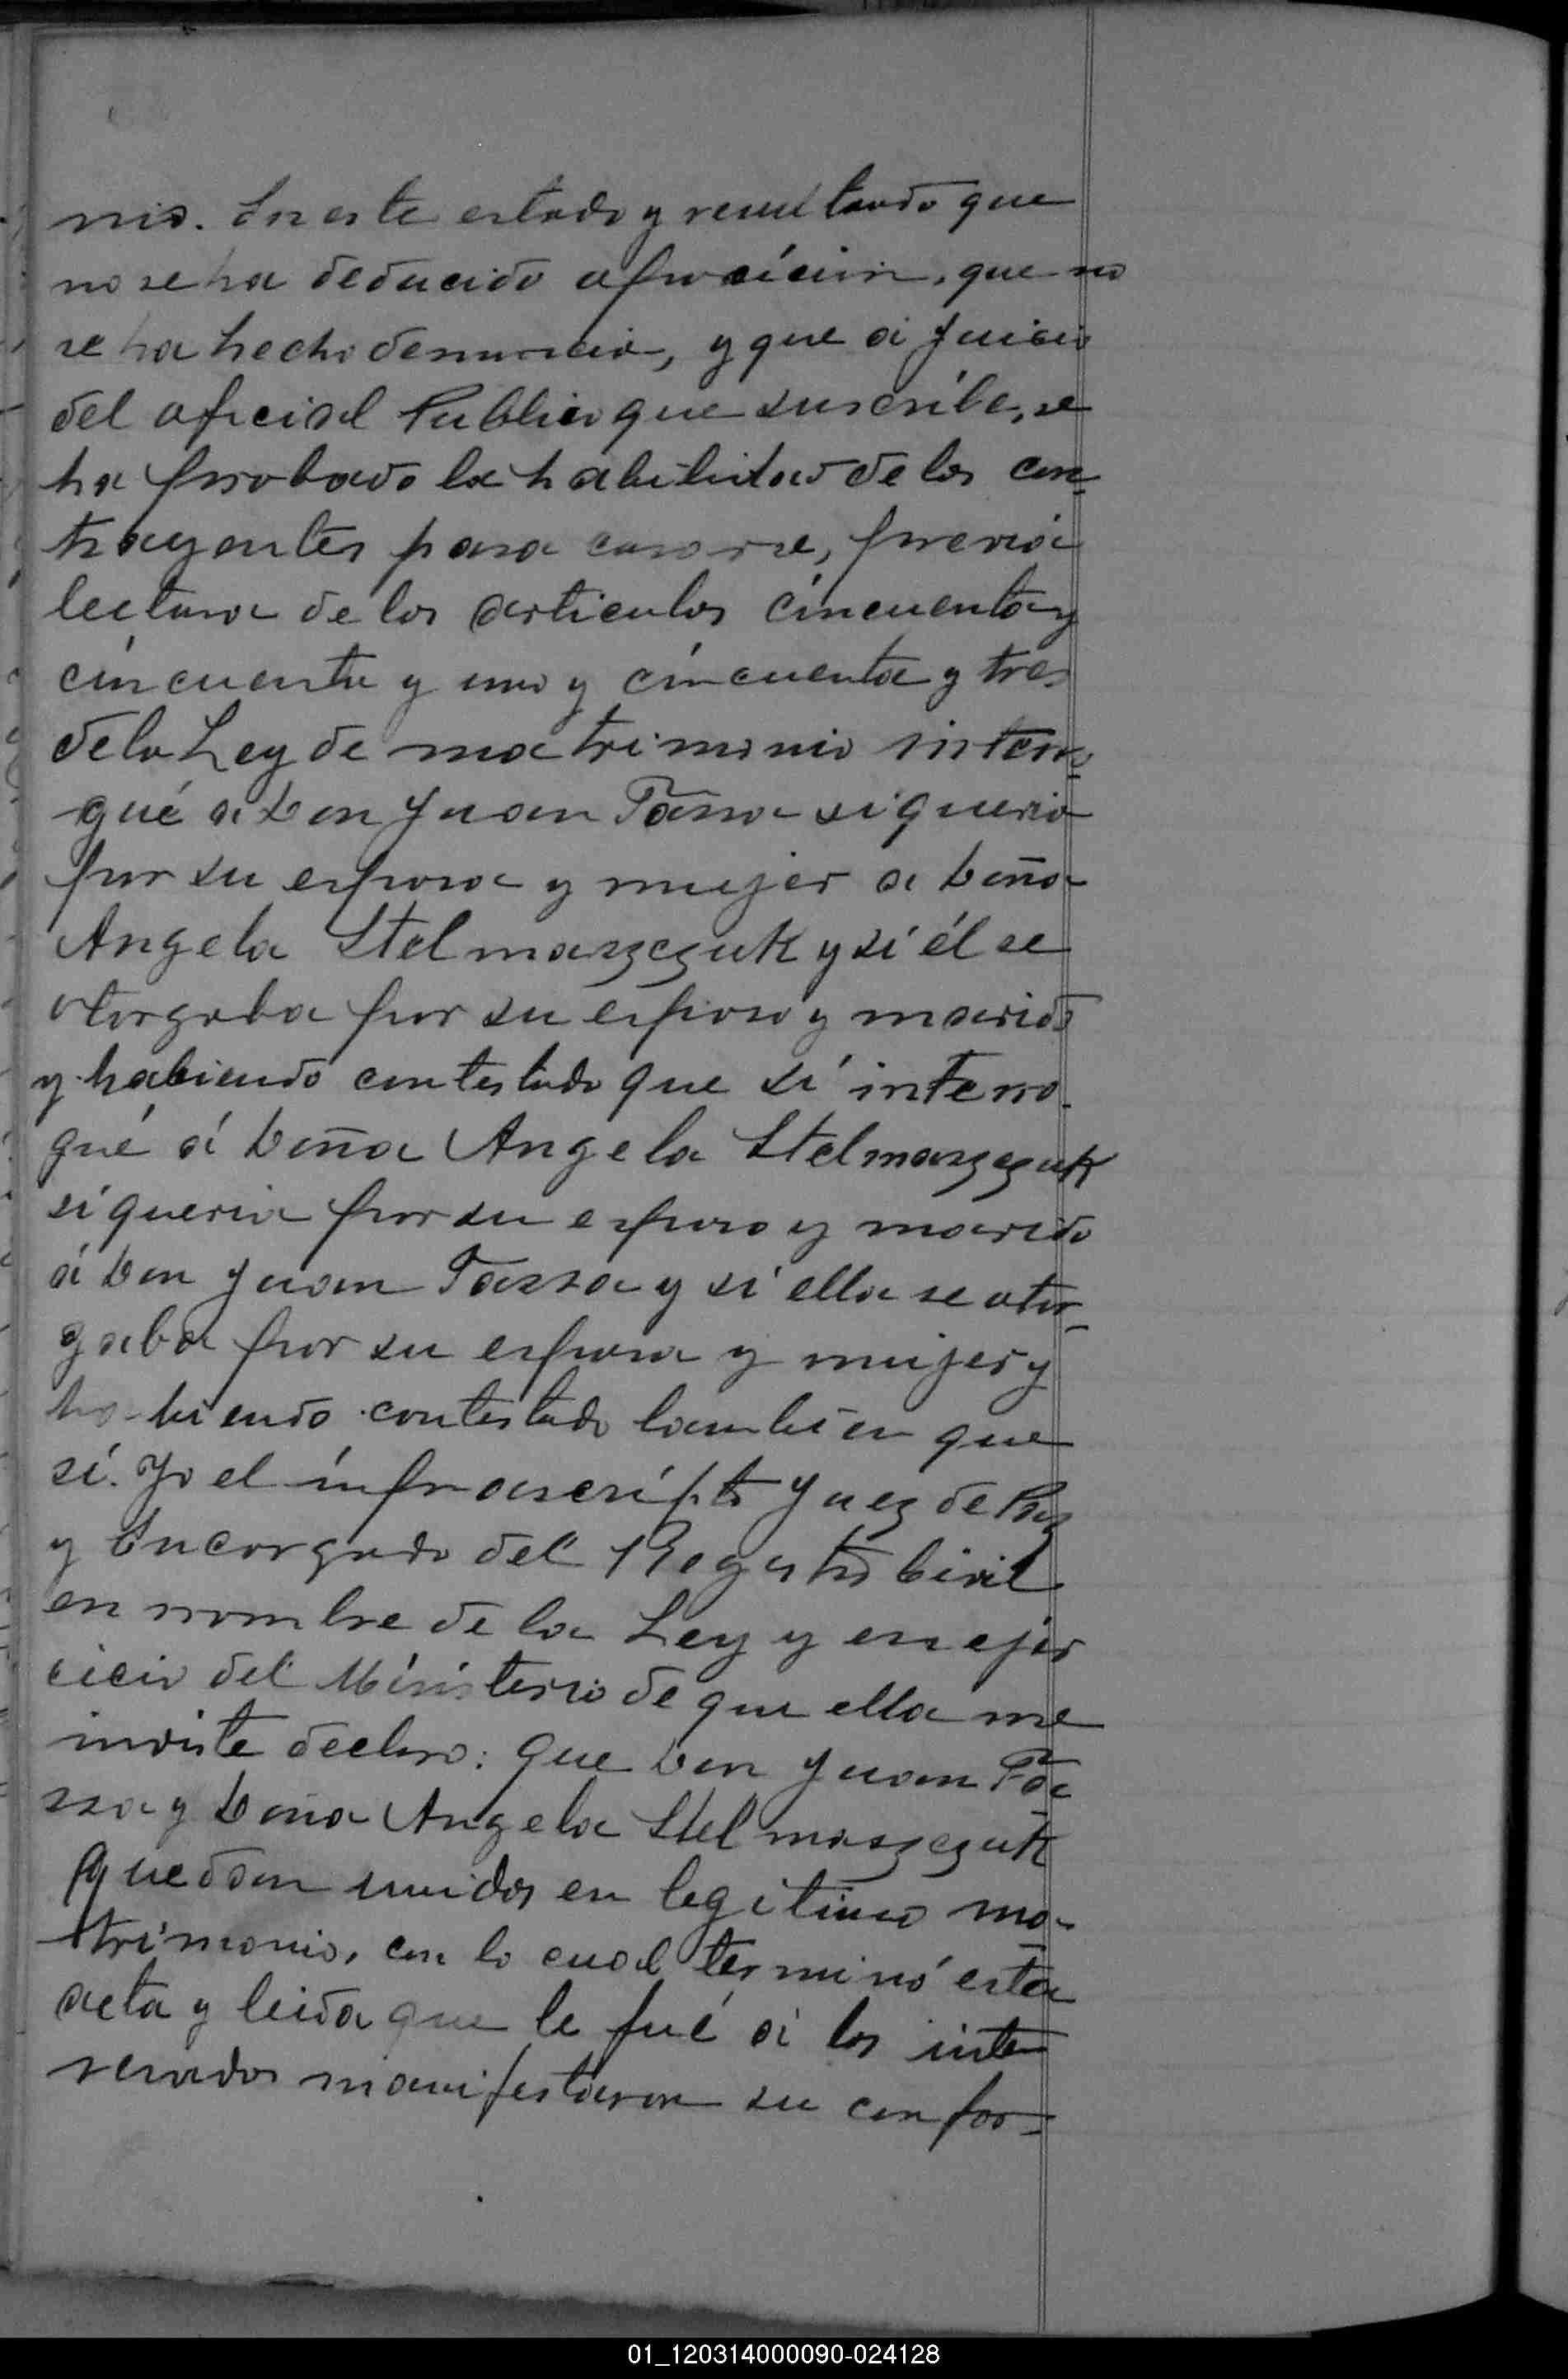 nio. En este estado y resultando que
no se ha deducido oposición, que no
se ha hecho denuncia, y que á juicio
del oficial Publico que suscribe, se
ha probado la habilidad de los con-
trayentes para casarse, previa
lectura de los articulos cincuenta y
cincuenta y uno y cincuenta y tres
de la Ley de matrimonio interro-
gué a Don Juan Tassa si queria
por su esposa y mujer a Doña
Angela Stelmaszczuk y si él se
otorgaba por su esposo y marido
y habiendo contestado que si interro-
gué á Doña Angela Stelmaszczuk
si queria por su esposo y marido
á Don Juan Tassa y si ella se otor-
gaba por su esposa y mujer y
habiendo contestado tambien que
si. Yo el infrascripto Juez de Paz
y Encargado del Registro Civil
en nombre de la Ley y en ejer
cicio del Ministerio de que ella me
inviste declaro: que Don Juan Ta-
ssa y Doña Angela Stelmaszczuk
quedan unidos en legitimo ma-
trimonio, con lo cual terminó esta
acta y leida que le fué á los inte
resados manifestaron su confor-
01_120314000090-024128